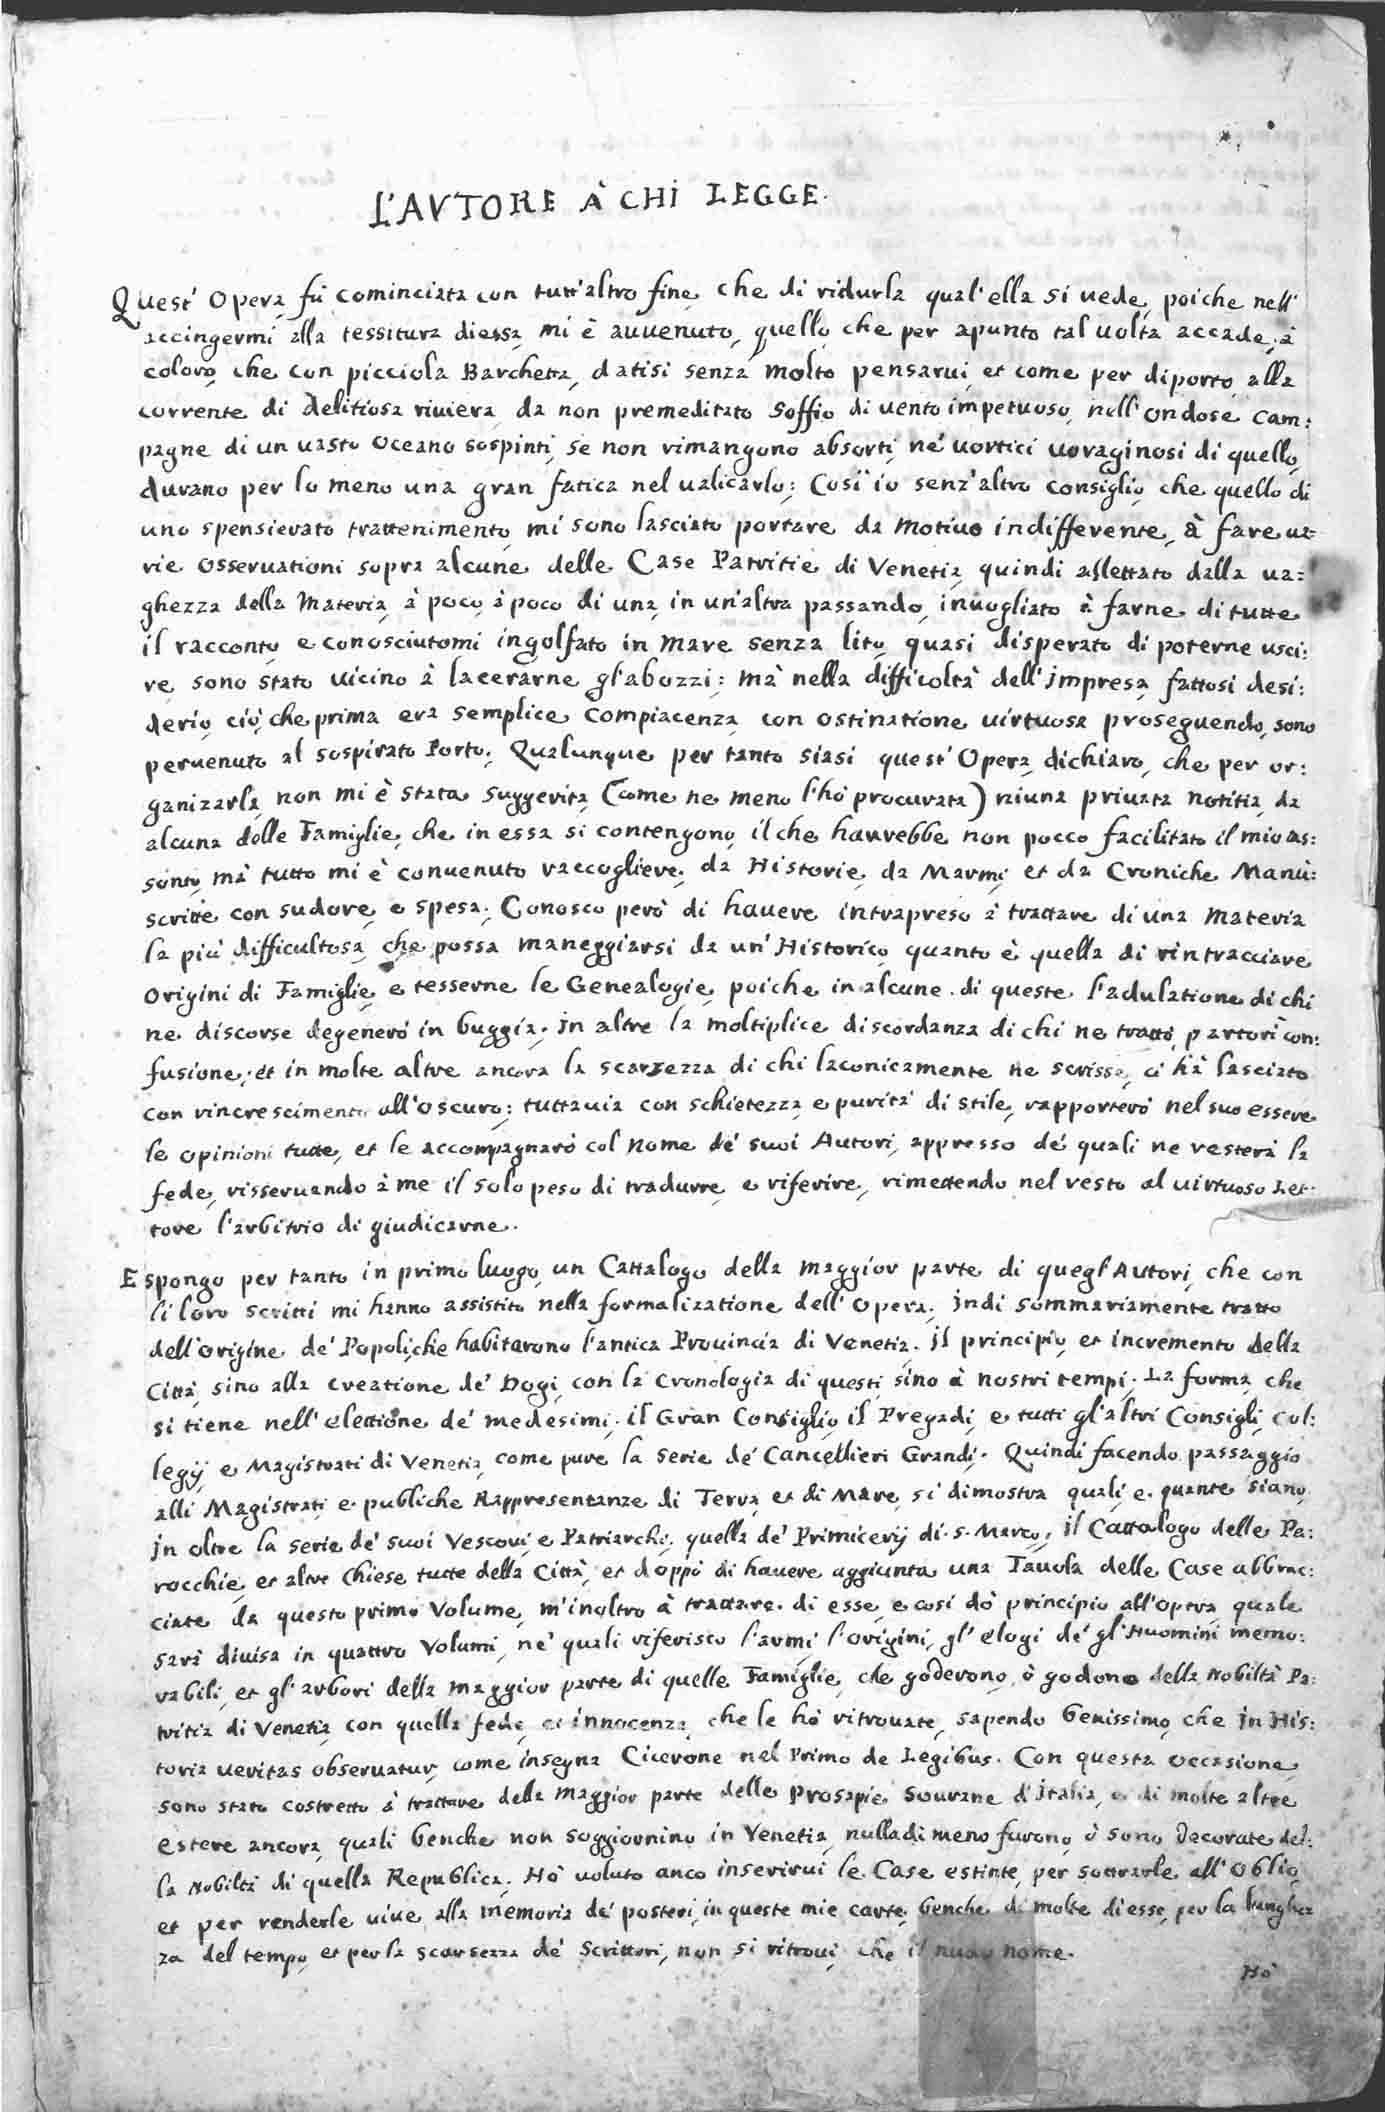 L'AVTORE À CHI LEGGE.
Quest' Opera fù cominciata con tutt'altro fine, che di ridurla qual'ella si uede, poiche nell'
accingermi alla tessitura diessa, mi è auuenuto, quello, che per apunto tal uolta accade, à
coloro, che con picciola Barchetta, datisi senza molto pensarui, et come per diporto, alla
corrente di delitiosa riuiera, da non premeditato soffio di uento impetuoso, nell'ondose cam:
pagne di un uasto Oceano sospinti, se non rimangono absorti, ne' uortici uoraginosi di quello,
durano per lo meno una gran fatica nel ualicarlo: Così io senz'altro consiglio, che quello di
uno spensierato trattenimento, mi sono lasciato portare da motiuo indifferente, à fare ua:
rie osseruationi sopra alcune delle Case Patritie di Venetia, quindi allettato dalla ua:
ghezza della Materia, à poco, à poco di una, in un'altra passando, inuogliato à farne di tutte
il racconto, e conosciutomi ingolfato in Mare senza lito, quasi disperato di poterne usci:
re sono stato uicino à lacerarne gl'abozzi: mà nella difficoltà dell'jmpresa, fattosi desi:
derio, ciò, che prima era semplice compiacenza, con ostinatione uirtuosa proseguendo, sono
peruenuto al sospirato Porto. Qualunque per tanto siasi quest' Opera, dichiaro, che per or:
ganizarla, non mi è stata suggerita (come ne meno l'hò procurata) niuna priuata notitia, da
alcuna delle Famiglie, che in essa si contengono, il che haurebbe non pocco facilitato il mio as:
sonto, mà tutto mi è conuenuto raccogliere, da Historie, da Marmi, et da Croniche Manu:
scritte con sudore, e spesa. Conosco però di hauere intrapreso à trattare di una materia
la più difficultosa, che possa maneggiarsi da un' Historico, quanto è quella di rintracciare
Origini di Famiglie, e tesserne le Genealogie, poiche in alcune di queste l'adulatione di chi
ne discorse degenerò in buggia. jn altre la moltiplice discordanza di chi ne trattò, partorì con:
fusione, et in molte altre ancora la scarsezza di chi laconicamente ne scrisse, ci hà lasciato
con rincrescimento all'oscuro; tuttauia con schietezza, e purità di stile, rapporterò nel suo essere
le opinioni tutte, et le accompagnarò col nome de' suoi Autori, appresso de' quali ne resterà la
fede, risseruando à me il solo peso di tradurre, e riferire, rimettendo nel resto al uirtuoso Let:
tore l'arbitrio di giudicarne.
Espongo per tanto in primo luogo, un Cattalogo della maggior parte di quegl'Auttori, che con
li loro scritti mi hanno assistito nella formalizatione dell'Opera. jndi sommariamente tratto
dell'origine de' Popoli, che habitarono l'antica Prouincia di Venetia. jl principio, et incremento della
Città, sino alla creatione de' Dogi, con la Cronologia di questi, sino à nostri tempi. La forma, che
si tiene nell'elettione de' medesimi. il Gran Consiglio, il Pregadi, e tutti gl'altri Consigli, col:
legij, e Magistrati di Venetia, come pure la serie de' Cancellieri Grandi. Quindi facendo passaggio
alli Magistrati, e publiche Rappresentanze di Terra, et di Mare, si dimostra quali, e quante siano,
jn oltre la serie de' suoi Vescoui, e Patriarchi, quella de' Primicerij di S. Marco, jl Cattalogo delle Pa:
rocchie, et altre Chiese tutte della Città, et doppò di hauere aggiunta una Tauola delle Case abbrac:
ciate da questo primo Volume, m'inoltro à trattare di esse, e così dò principio all'opera, quale
sarà diuisa in quattro Volumi, ne' quali riferisco l'armi, l'origini, gl'elogi de' gl'Huomini memo:
rabili, et gl'arbori della maggior parte di quelle Famiglie, che goderono, ò godono della Nobiltà Pa:
tritia di Venetia, con quella fede, et innocenza, che le hò ritrouate, sapendo benissimo, che jn His:
toria ueritas obseruatur, come insegna Cicerone nel Primo de Legibus. Con questa occasione,
sono stato costretto à trattare della maggior parte delle Prosapie Sourane d'jtalia, e di molte altre
estere ancora, quali benche non soggiornino in Venetia, nulladimeno furono, ò sono decorate del:
la Nobiltà di quella Republica. Hò uoluto anco inserirui le Case estinte, per sottrarle all'Oblio,
et per renderle uiue alla memoria de' posteri, in queste mie carte, benche di molte di esse, per la lunghez
za del tempo, et per la scarsezza de' Scrittori, non si ritroui che il nudo nome.
Hò